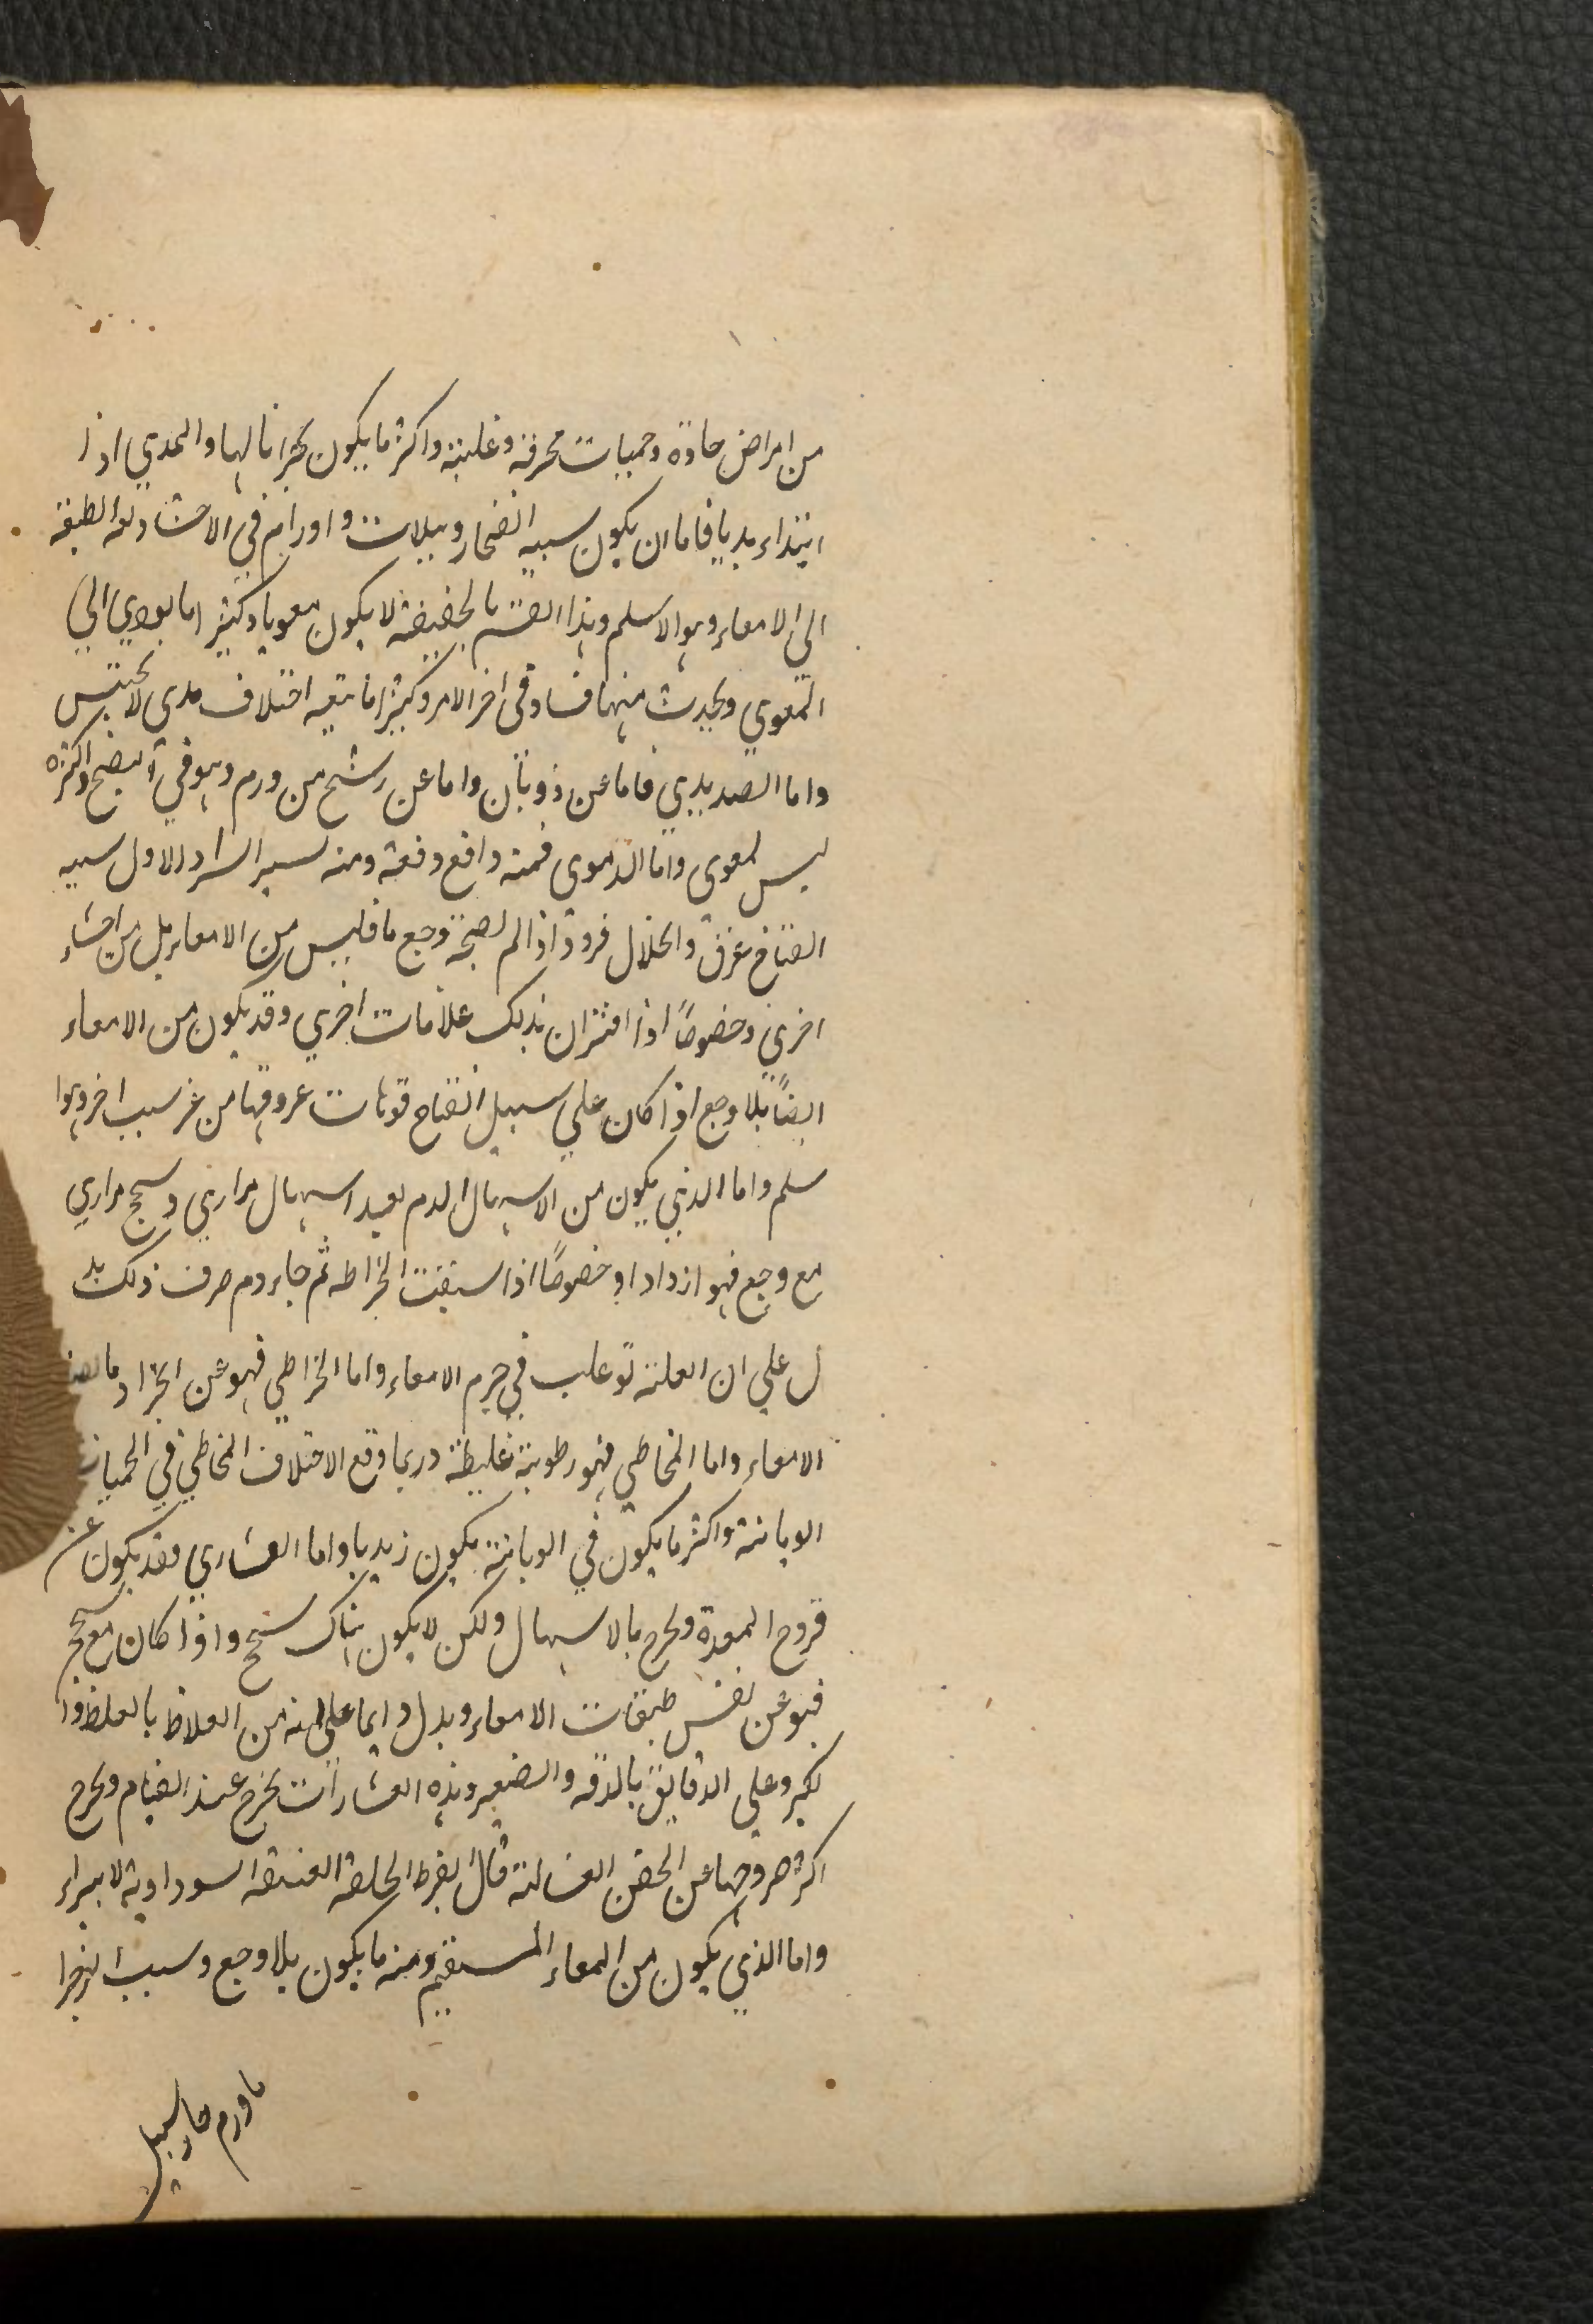 من امراض حادة وحميات محرقة وغلبية واكثر ما يكون بحرانا لها والمدي اذا
ابتداء مديا فاما ان يكون سببه انفجار وبيلات واورام في الاحشا دفعه الطبيعة
الى الامعاء وهو الاسلم وهذا القسم بالحقيقة لا يكون معويا وكثيرا ما يودي الى
المعوي ويحدث منها فساد في اخر الامر وكثيرا ما يتبعه اختلاف مدى لا يحتبس
واما الصديدي فاما عن ذوبان واما عن رشح من ورم وهو في النضج واكثره
ليس لمعوى واما الدموى فمنه واقع دفعة ومنه يسيرا يسيرا والاول سببه
انفتاح عرق وانحلال فرد اذا لم يصحبه وجع ما فليس من الامعاء بل من احشاء
اخرى وخصوصاً اذا اقترن بذلك علامات اخري وقد يكون من الامعاء
ايضاً بلا وجع اذا كان علي سبيل انفتاح فوهات عروقها من غير سبب اخر وهوا
سلم واما الذي يكون من الاسهال الدم بعيد اسهال مراري وسحج مراري
مع وجع فهو ازدادا وخصوصاً اذا سبقت الخراطه ثم جاء دم صرف ذلك يد
ل علي ان العلة توغلت في جرم الامعاء واما الخراطي فهو عن انجراد ما
الامعاء واما المخاطي فهو رطوبة غليظة وربما وقع الاختلاف المخاطي في الحميات
الوبائية واكثر ما يكون في الوبائية يكون زبديا واما القشاري فقد يكون عن
قروح المعدة ويخرج بالاسهال ولكن لا يكون هناك سحج واذا كان مع سحج
فهو عن نفس طبقات الامعاء ويدل دايما على انه من الغلاظ بالغلظ وا
لكبر وعلى الدقايق بالدقه والصغير وهذه القشارات تخرج عند القيام ويخرج
اكثر خروجها عن الحقن الغسالة قال ابقراط الخلفة العتيقة السوداوية لا تبراء
واما الذي يكون من المعاء المستقيم ومنه ما يكون بلا وجع وسببه انفجرا
ما ورم حار